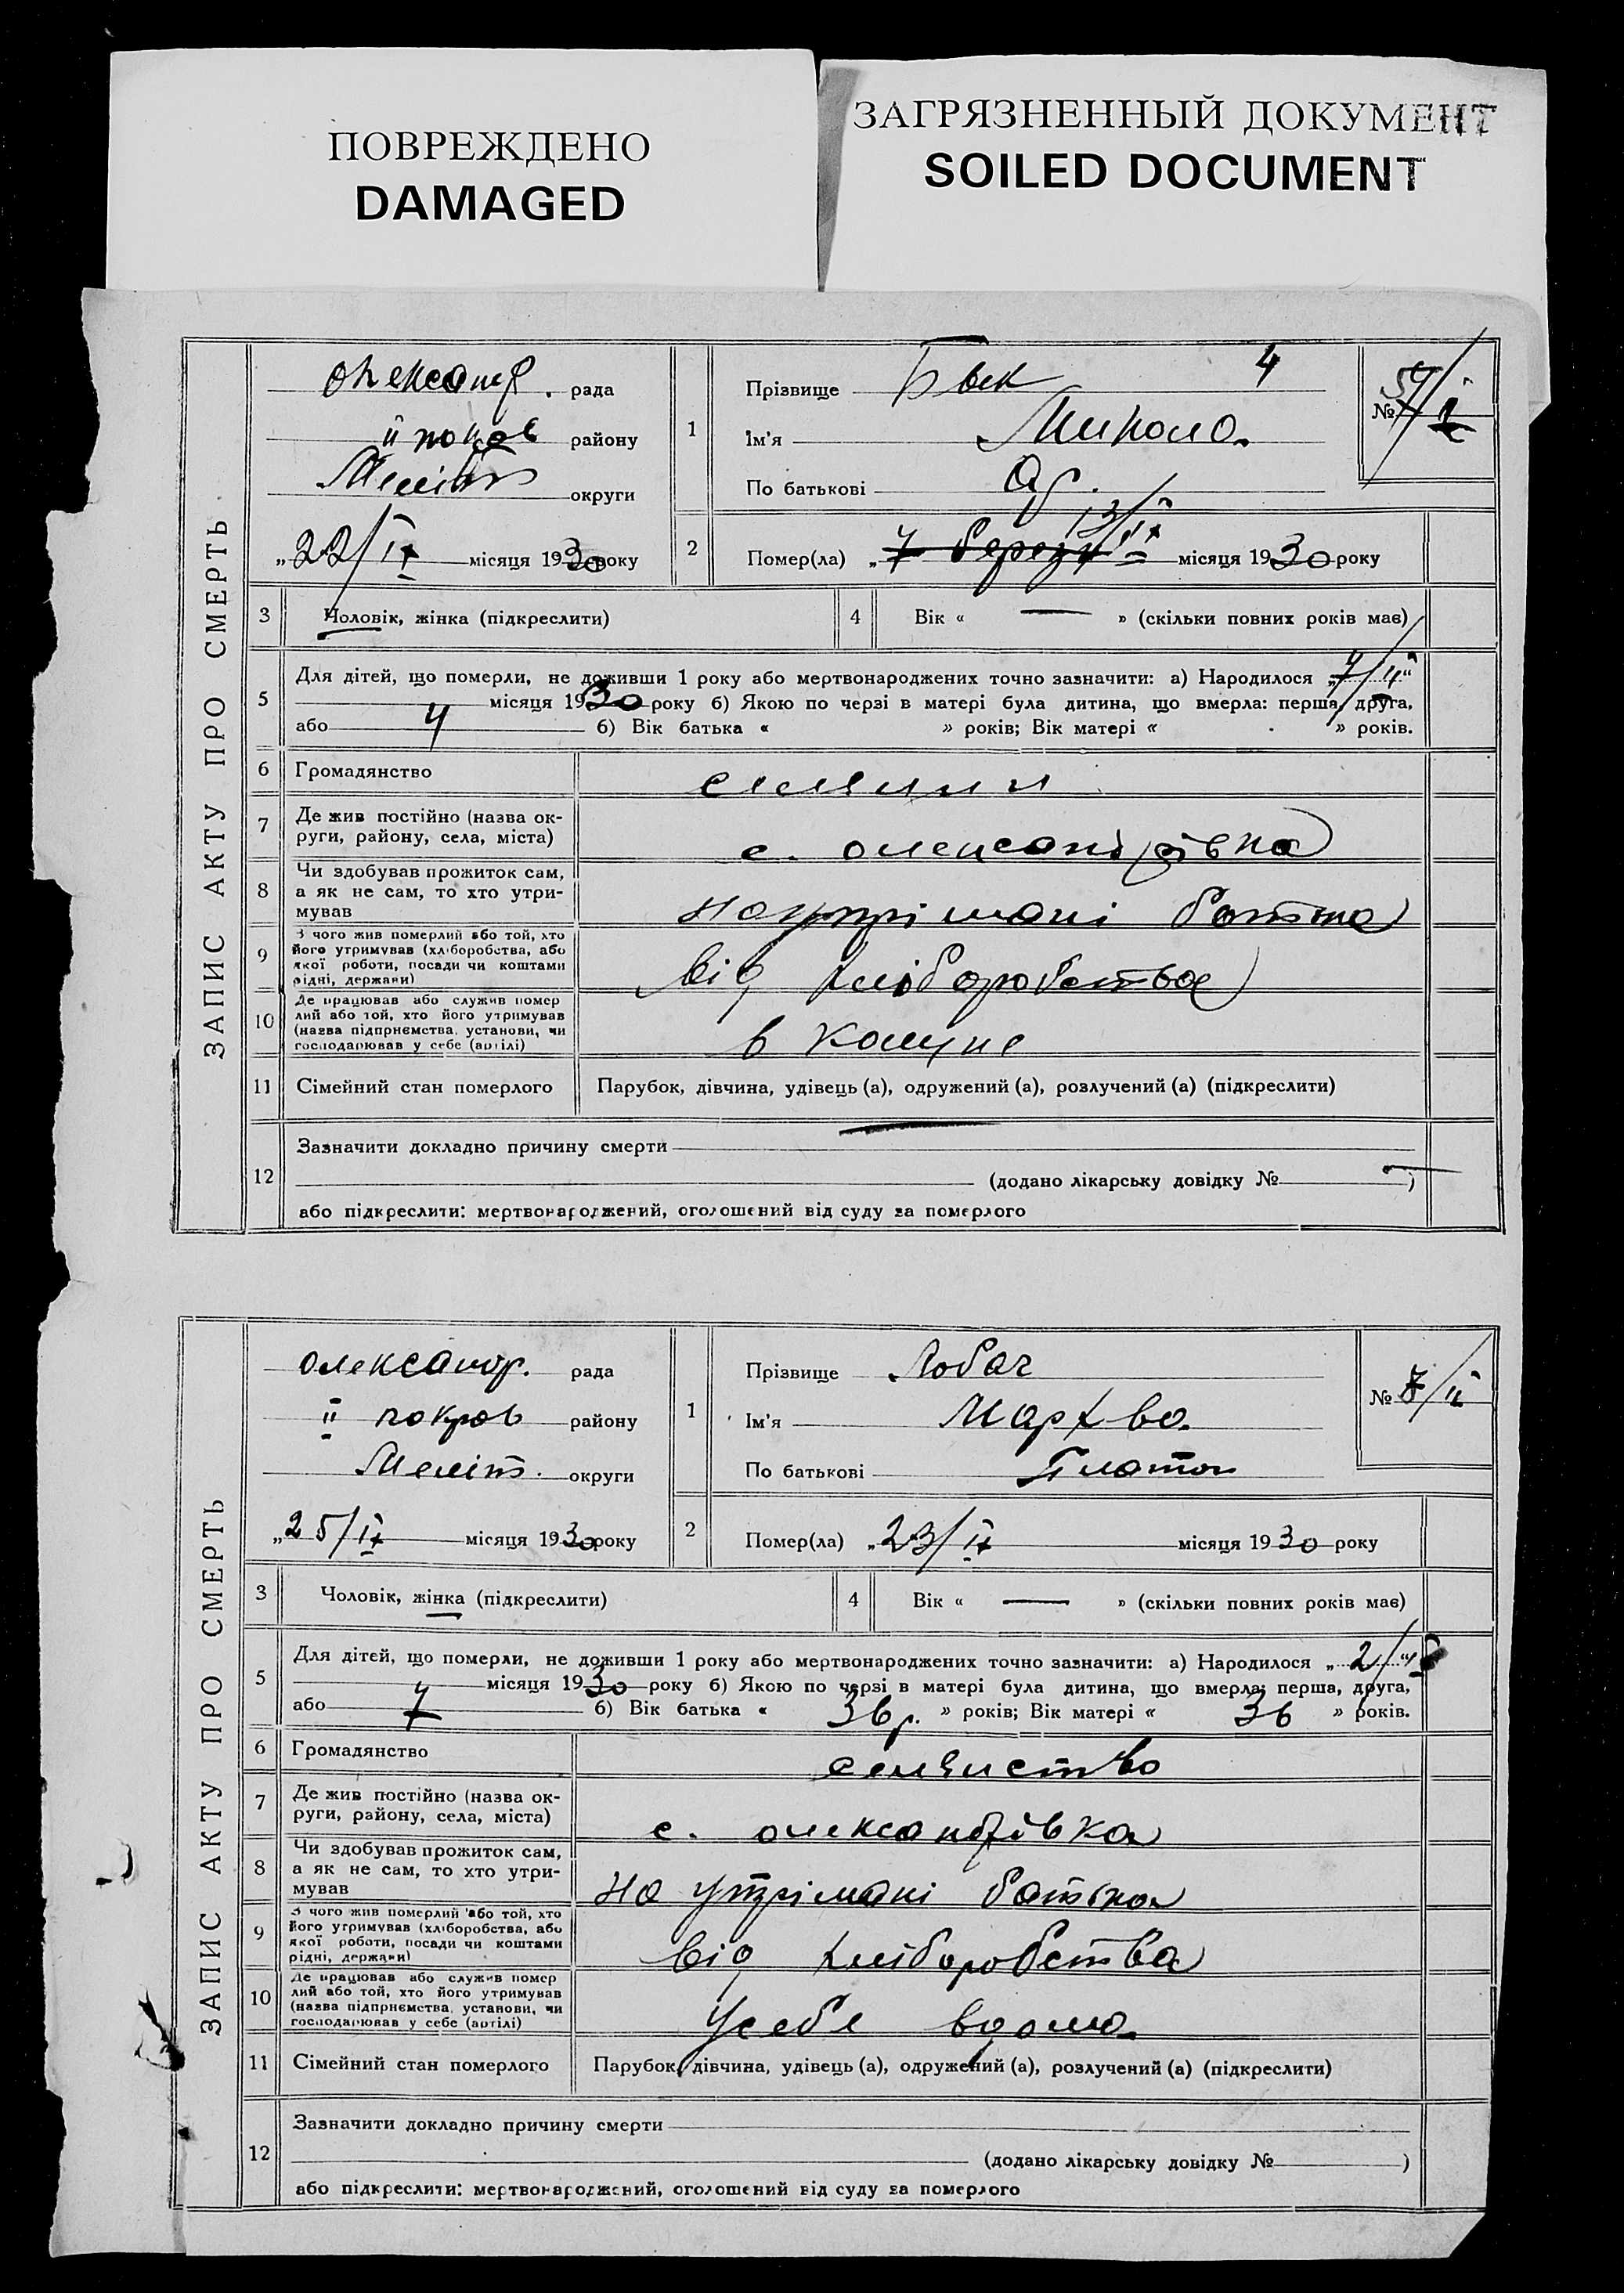 ПОВРЕЖДЕНО
DAMAGED
ЗАГРЯЗНЕННЫЙ ДОКУМЕНТ
SOILED DOCUMENT
ЗАПИС АКТУ ПРО СМЕРТЬ
рада
району
округи
„22/IX місяця 1930 року
1
Прізвище 4
Ім'я Микола
По батькові
№
2
Помер(ла) „ місяця 1930 року
3
Чоловік, жінка (підкреслити)
4
Вік « — » (скільки повних років має)
5
Для дітей, що померли, не доживши 1 року або мертвонароджених точно зазначити: а) Народилося „
місяця 1930 року б) Якою по черзі в матері була дитина, що вмерла: перша, друга,
або 4 б) Вік батька « » років; Вік матері « » років.
6
Громадянство
7
Де жив постійно (назва ок-
руги, району, села, міста)
с. олександрівка
8
Чи здобував прожиток сам,
а як не сам, то хто утри-
мував
на утрімані батька
9
З чого жив померлий або той, хто
його утримував (хліборобства, або
якої роботи, посади чи коштами
рідні, держави)
від хліборобства
10
Де працював або служив помер
лий або той, хто його утримував
(назва підприємства, установи, чи
господарював у себе (артілі)
в комуне
11
Сімейний стан померлого
Парубок, дівчина, удівець (а), одружений (а), розлучений (а) (підкреслити)
12
Зазначити докладно причину смерти
(додано лікарську довідку № )
або підкреслити: мертвонароджений, оголошений від суду за померлого
ЗАПИС АКТУ ПРО СМЕРТЬ
олександр. рада
II покров району
Меліт. округи
„25/IX місяця 1930 року
1
Прізвище Лобач
Ім'я Мархва
По батькові Платон
№ /II
2
Помер(ла) „23/IX місяця 1930 року
3
Чоловік, жінка (підкреслити)
4
Вік « — » (скільки повних років має)
5
Для дітей, що померли, не доживши 1 року або мертвонароджених точно зазначити: а) Народилося „2/
місяця 1930 року б) Якою по черзі в матері була дитина, що вмерла: перша, друга,
або 7 б) Вік батька « 36 р. » років; Вік матері « 36 » років.
6
Громадянство
7
Де жив постійно (назва ок-
руги, району, села, міста)
с. олександрівка
8
Чи здобував прожиток сам,
а як не сам, то хто утри-
мував
на утрімані батька
9
З чого жив померлий або той, хто
його утримував (хліборобства, або
якої роботи, посади чи коштами
рідні, держави)
від хліборобства
10
Де працював або служив помер
лий або той, хто його утримував
(назва підприємства, установи, чи
господарював у себе (артілі)
усебе вдома
11
Сімейний стан померлого
Парубок, дівчина, удівець (а), одружений (а), розлучений (а) (підкреслити)
12
Зазначити докладно причину смерти
(додано лікарську довідку № )
або підкреслити: мертвонароджений, оголошений від суду за померлого